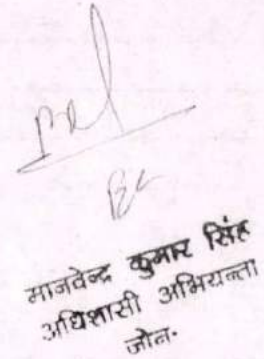 मानवेन्द्र कुमार सिंह
अधिशासी अभियन्ता
जोन.